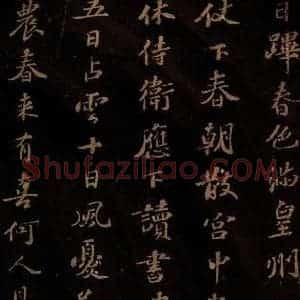 春色滿皇州
仗下春朝散宮中
休侍衛應下讀書
五日占雲十日風憂
農春來有喜何人見
Shufaziliao.com